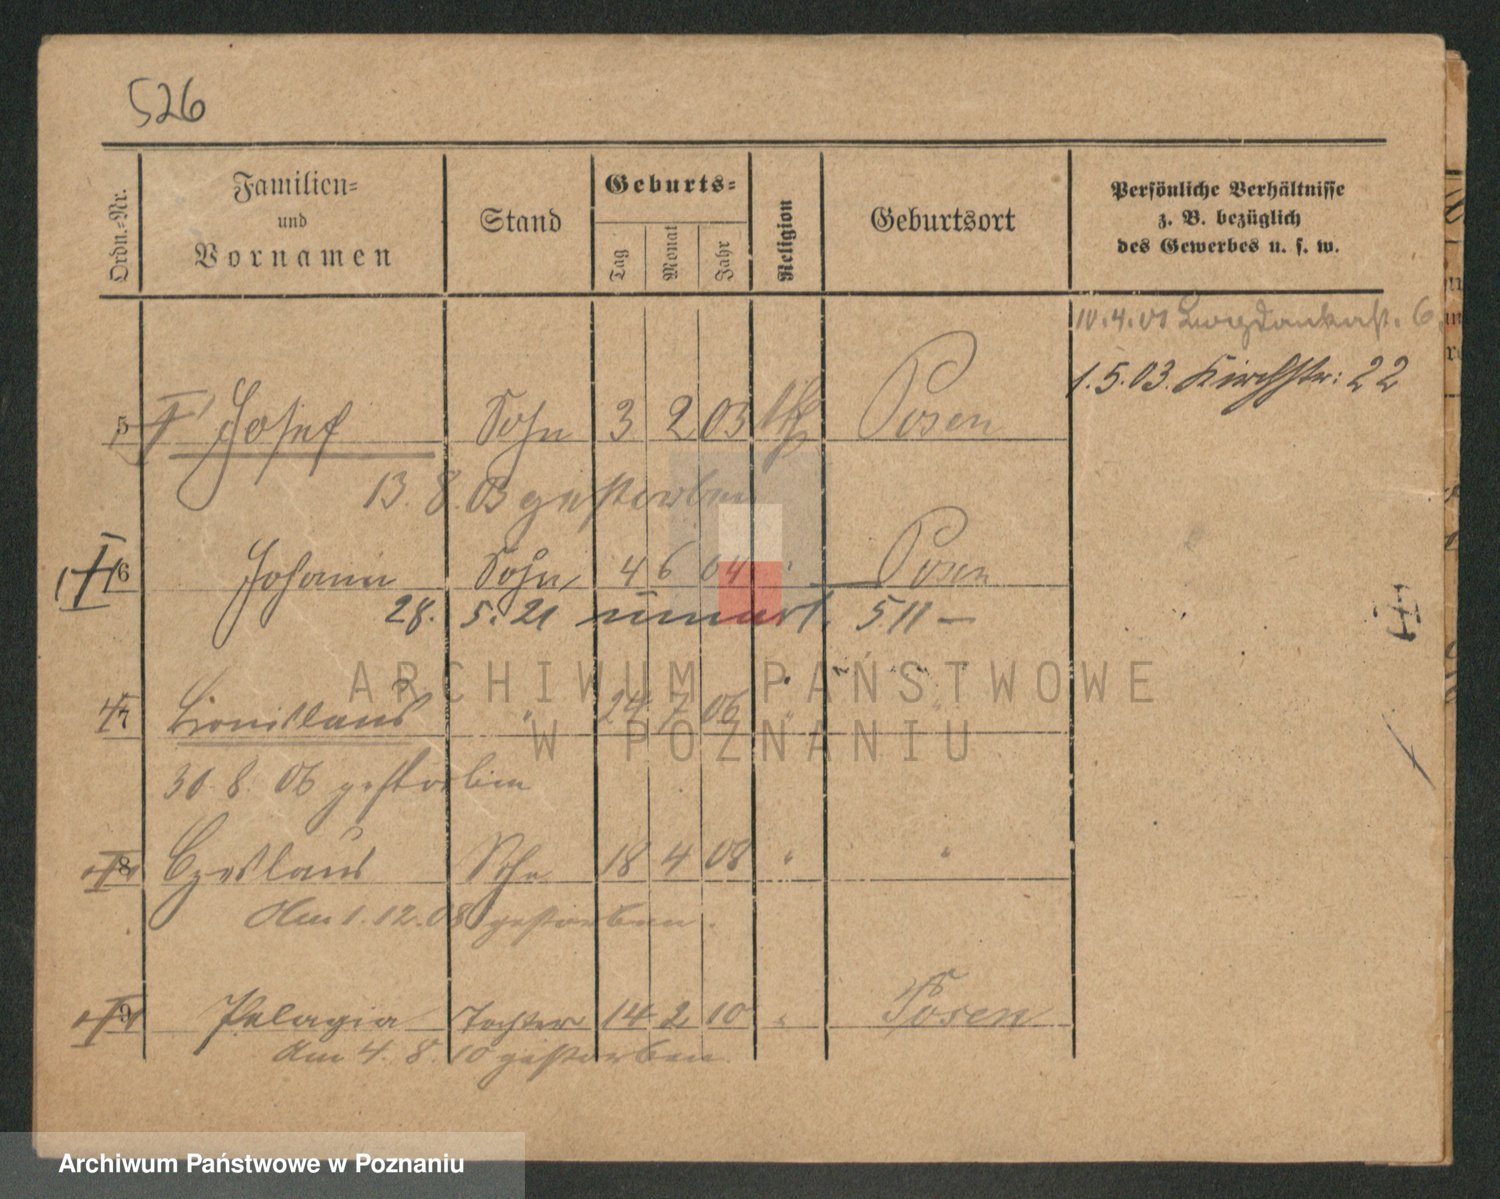 526
Ordn.-Nr.
Familien-
und
Vornamen
Stand
Geburts-
Tag Monat Jahr
Religion
Geburtsort
Persönliche Verhältnisse
z. B. bezüglich
des Gewerbes u. s. w.
1.5.03. Kirchstr: 22
5 Josef Sohn 3 2 03 Posen
13. 8. 03 gestorben
6 Johann Sohn 4 6 04 " Posen
28. 5. 21 5 11 —
7 " 24 7 06 " "
30. 8. 06 gestorben
8 Czeslaus Sohn 18 4 08 " "
Am 1. 12. 08 gestorben.
9 Pelagia Tochter 14 2 10 " Posen
Am 4. 8. 10 gestorben.
ARCHIWUM PAŃSTWOWE
W POZNANIU
Archiwum Państwowe w Poznaniu